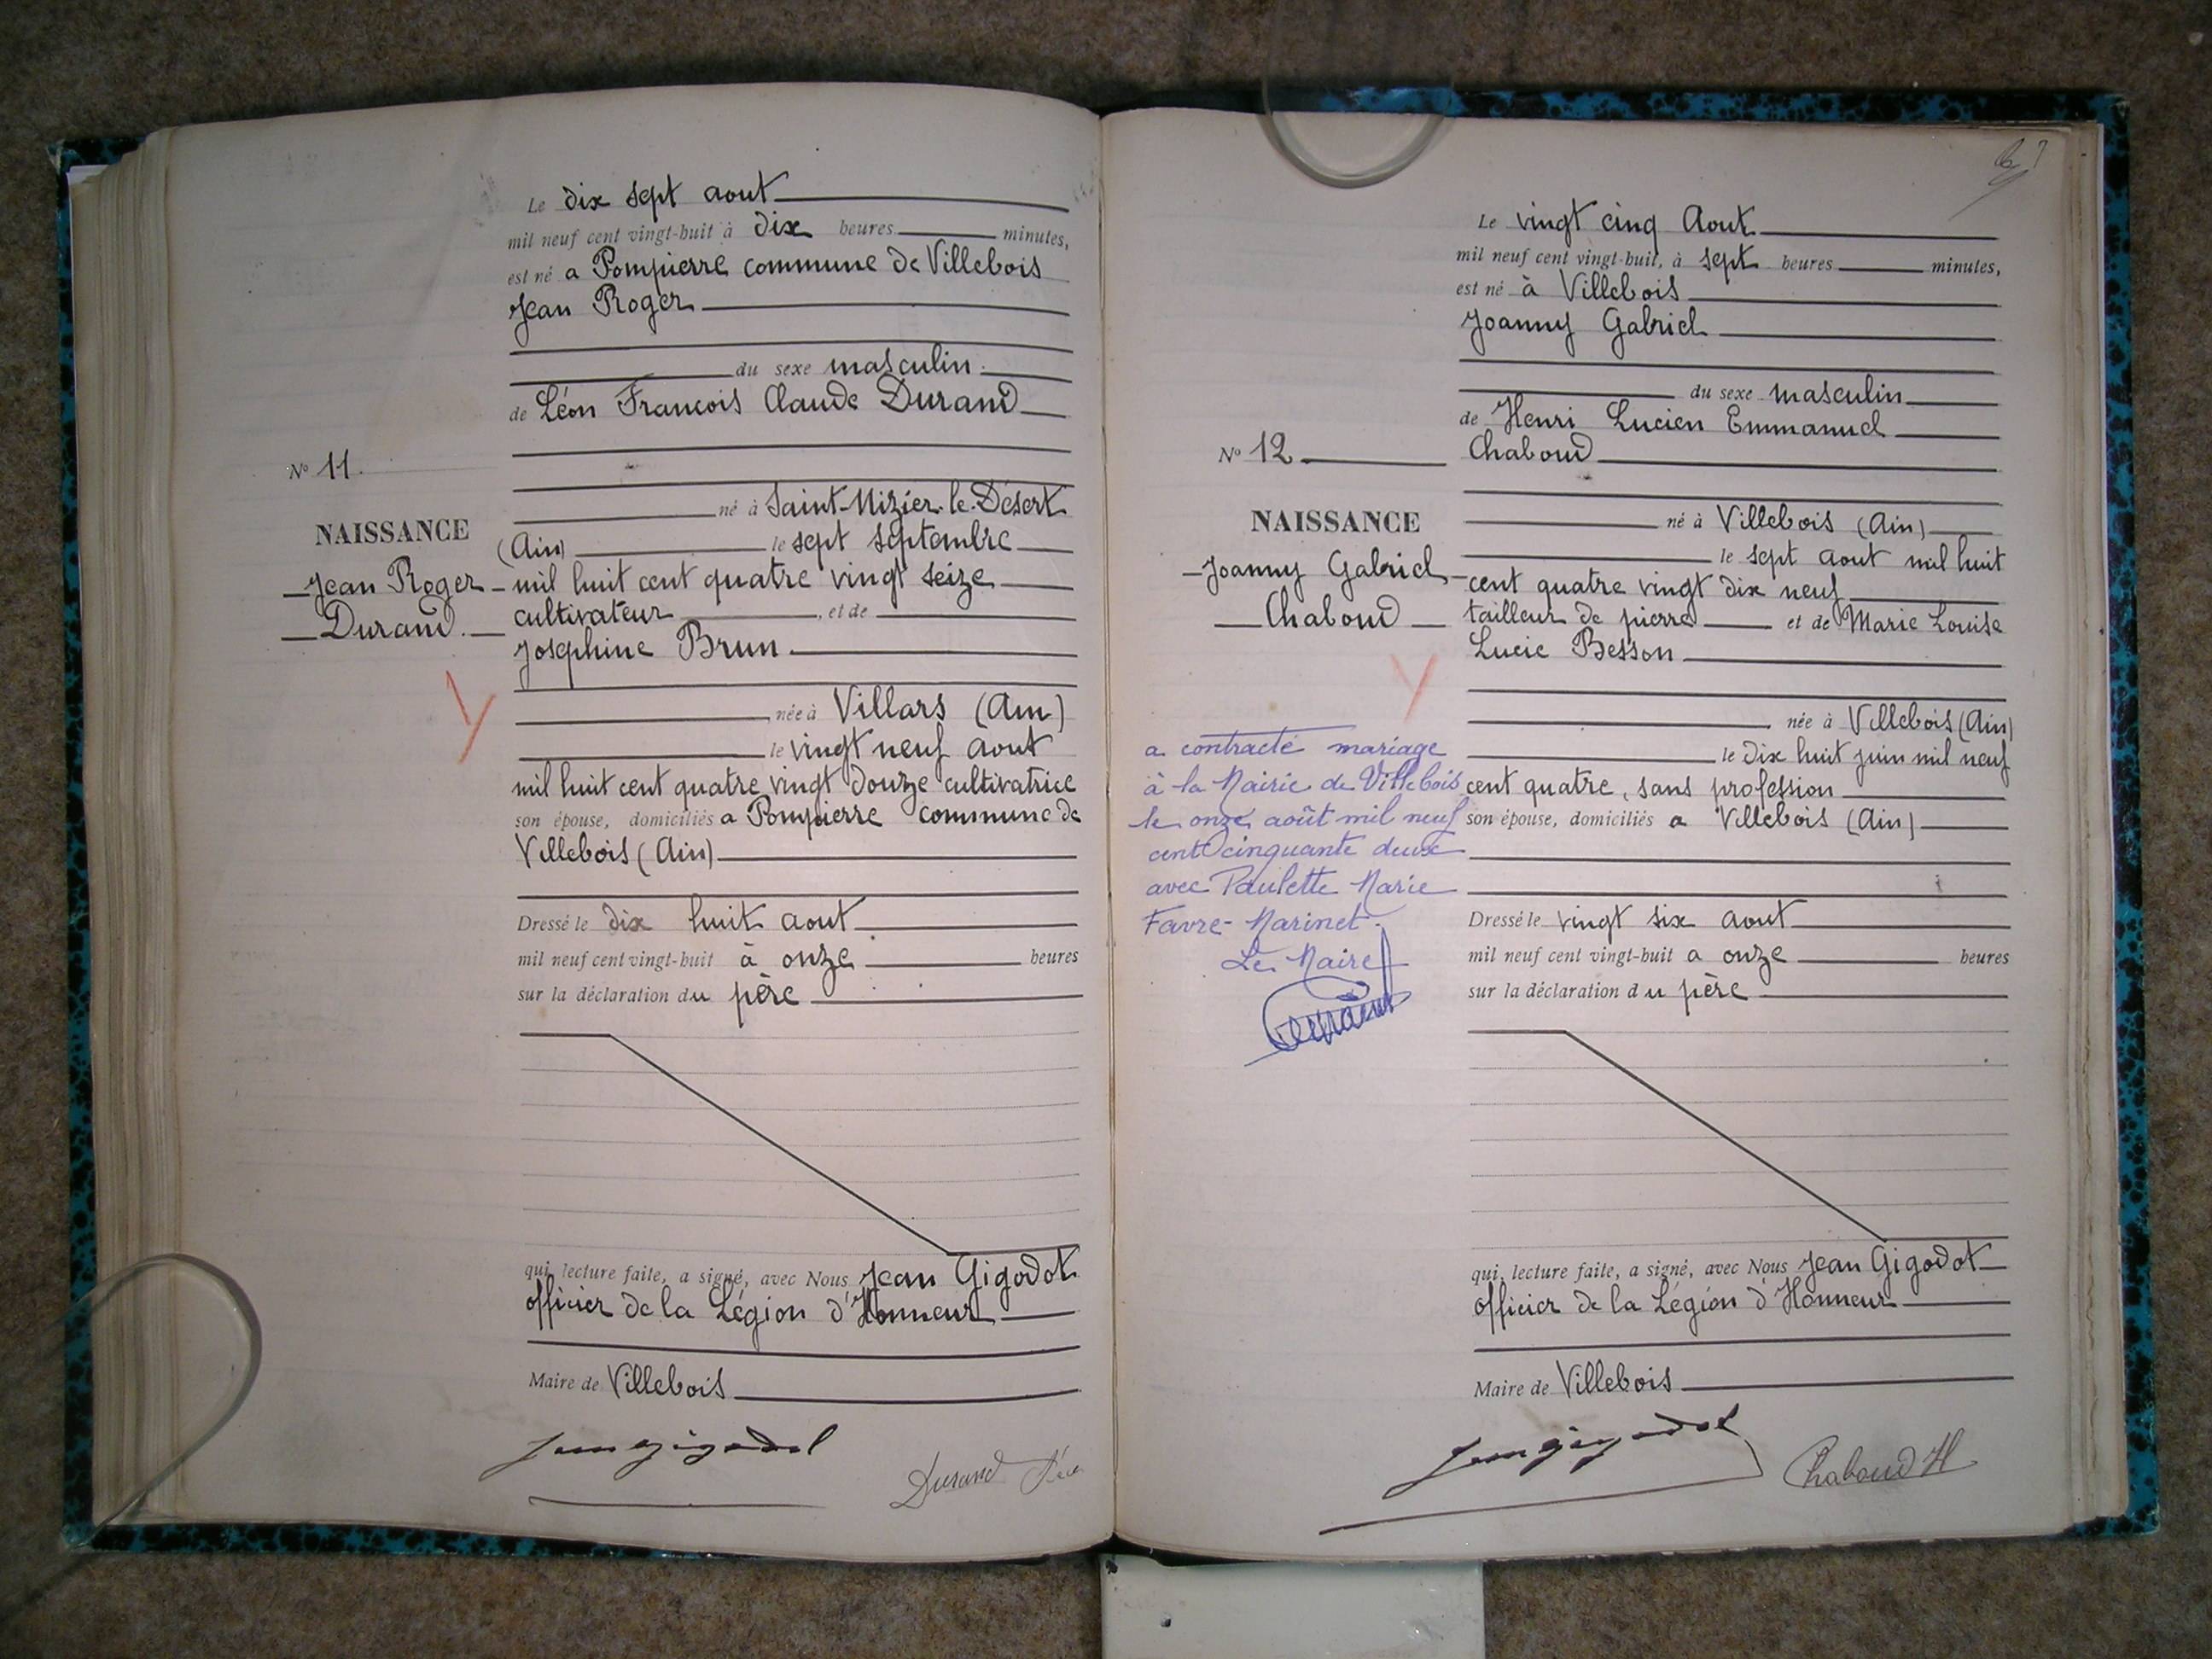 Le dix sept aout
mil neuf cent vingt-huit à dix heures minutes,
est né a Pompierre commune de Villebois
Jean Roger
du sexe masculin
de Léon François Claude Durand
N° 11
né à Saint-Nizier-le-Désert
NAISSANCE
(Ain) le sept septembre
Jean Roger
mil huit cent quatre vingt seize
Durand
cultivateur, et de
Josephine Brun
née à Villars (Ain)
le vingt neuf aout
mil huit cent quatre vingt douze cultivatrice
son épouse, domiciliés a Pompierre commune de
Villebois (Ain)
Dressé le dix huit aout
mil neuf cent vingt-huit à onze heures
sur la déclaration du père
qui, lecture faite, a signé, avec Nous Jean Gigodot
officier de la Légion d'Honneur
Maire de Villebois
Jean Gigodot
Durand
Le vingt cinq Aout
mil neuf cent vingt-huit, à sept heures minutes,
est né à Villebois
Joanny Gabriel
du sexe masculin
de Henri Lucien Emmanuel
N° 12
Chaboud
NAISSANCE
né à Villebois (Ain)
le sept aout mil huit
Joanny Gabriel
cent quatre vingt dix neuf
Chaboud
tailleur de pierre et de Marie Louise
Lucie Besson
née à Villebois (Ain)
le dix huit juin mil neuf
cent quatre, sans profession
son épouse, domiciliés a Villebois (Ain)
a contracté mariage
à la Mairie de Villebois
le onze août mil neuf
cent cinquante deux
avec Paulette Marie
Favre-Marinet.
Le Maire
Dressé le vingt six aout
mil neuf cent vingt-huit a onze heures
sur la déclaration du père
qui, lecture faite, a signé, avec Nous Jean Gigodot
officier de la Légion d'Honneur
Maire de Villebois
Jean Gigodot
Chaboud H